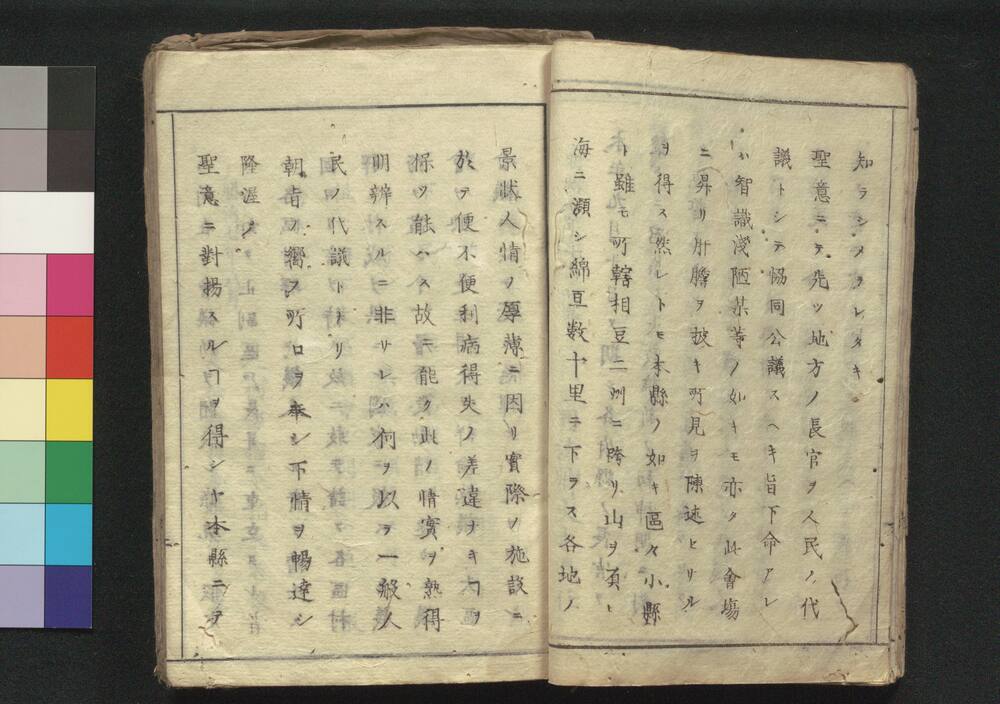 知ラシメラレタキ
聖意ニテ先ツ地方ノ長官ヲ人民ノ代
議トシテ協同公議スヘキ旨下命アレ
ハ智識淺陋某等ノ如キモ亦タ此會塲
ニ昇リ肝膽ヲ披キ所見ヲ陳述セサル
ヲ得ス然レトモ本縣ノ如キ區々小縣
ト雖モ所轄相豆二州ニ跨リ山ヲ負ヒ
海ニ瀕シ綿亘数十里ニ下ラス各地ノ
景状人情ノ厚薄ニ因リ實際ノ施設ニ
於テ便不便利病得失ノ差違ナキヿヲ
保ツ能ハス故ニ能ク此ノ情實ヲ熟得
明辨スルニ非サレハ何ヲ以テ一般人
民ノ代議トナリ
朝旨ノ嚮フ所ロヲ奉シ下情ヲ暢達シ
隆渥ノ
聖意ニ對揚スルヿヲ得ンヤ本縣ニテ